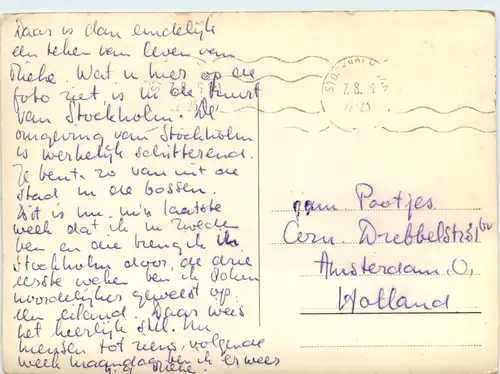 Daar is dan eindelijk
een teken van leven van
Mieke. Wat u hier op de
foto ziet is in de buurt
van Stockholm. De
omgeving van Stockholm
is werkelijk schitterend.
Je bent zo van uit de
stad in de bossen.
Dit is nu m'n laatste
week dat ik in Zweden
ben en die breng ik in
Stockholm door, de drie
eerste weken ben ik
noordelijker geweest op
een eiland. Daar was
het heerlijk stil. Nu
mensen tot ziens, volgende
week maandag ben ik er weer
Mieke.
7.8.
fam Pootjes
Corn. Drebbelstr.
Amsterdam, O,
Holland